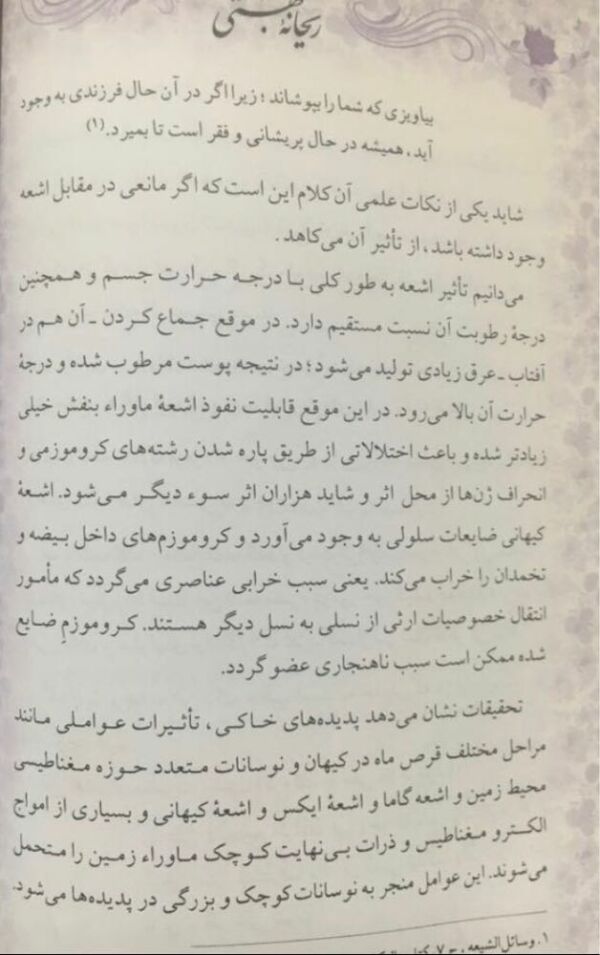 ریحانهٔ بهشتی
بیاویزی که شما را بپوشاند؛ زیرا اگر در آن حال فرزندی به وجود
آید، همیشه در حال پریشانی و فقر است تا بمیرد.(۱)
شاید یکی از نکات علمی آن کلام این است که اگر مانعی در مقابل اشعه
وجود داشته باشد، از تأثیر آن می‌کاهد.
می‌دانیم تأثیر اشعه به طور کلی با درجه حرارت جسم و همچنین
درجهٔ رطوبت آن نسبت مستقیم دارد. در موقع جماع کردن ـ آن هم در
آفتاب ـ عرق زیادی تولید می‌شود؛ در نتیجه پوست مرطوب شده و درجهٔ
حرارت آن بالا می‌رود. در این موقع قابلیت نفوذ اشعهٔ ماوراء بنفش خیلی
زیادتر شده و باعث اختلالاتی از طریق پاره شدن رشته‌های کروموزمی و
انحراف ژن‌ها از محل اثر و شاید هزاران اثر سوء دیگر می‌شود. اشعهٔ
کیهانی ضایعات سلولی به وجود می‌آورد و کروموزم‌های داخل بیضه و
تخمدان را خراب می‌کند. یعنی سبب خرابی عناصری می‌گردد که مأمور
انتقال خصوصیات ارثی از نسلی به نسل دیگر هستند. کروموزمِ ضایع
شده ممکن است سبب ناهنجاری عضو گردد.
تحقیقات نشان می‌دهد پدیده‌های خاکی، تأثیرات عواملی مانند
مراحل مختلف قرص ماه در کیهان و نوسانات متعدد حوزه مغناطیسی
محیط زمین و اشعه گاما و اشعهٔ ایکس و اشعهٔ کیهانی و بسیاری از امواج
الکترو مغناطیس و ذرات بی‌نهایت کوچک ماوراء زمین را متحمل
می‌شوند. این عوامل منجر به نوسانات کوچک و بزرگی در پدیده‌ها می‌شود.
۱. وسائل‌الشیعه، ج ۷،